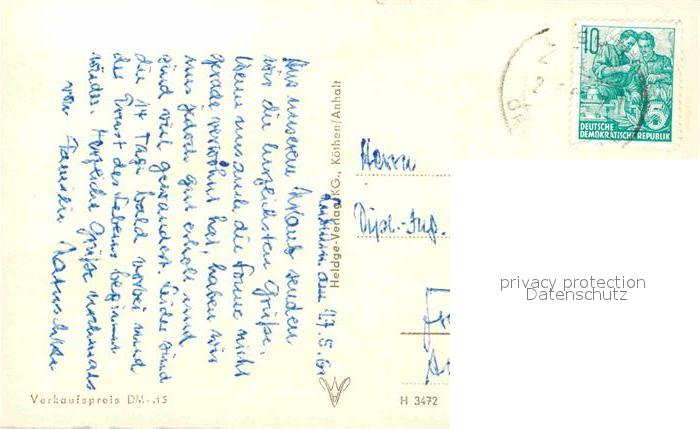 Aus unserem Urlaub senden
wir die herzlichsten Grüße.
Wenn uns auch die Sonne nicht
gerade verwöhnt hat, haben wir
uns jedoch gut erholt und
sind viel gewandert. Leider sind
die 14 Tage bald vorbei und
der Ernst des Lebens beginnt
wieder. Herzliche Grüße nochmals
von Familie
den 17.5.60
Heldge-Verlag KG., Köthen/Anhalt
Herrn
Dipl.-Ing.
10
DEUTSCHE
DEMOKRATISCHE REPUBLIK
privacy protection
Datenschutz
Verkaufspreis DM -.15
H 3472